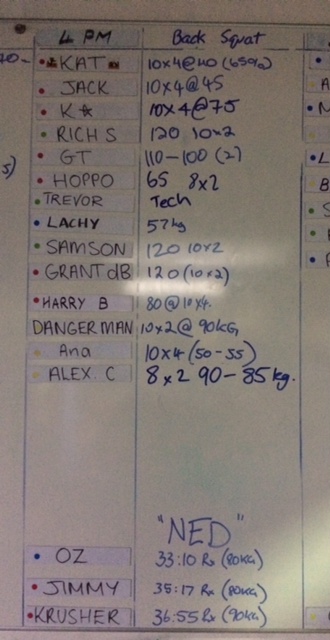 4 PM Back Squat
KAT 10x4@40 (65%)
JACK 10x4@45
K☆ 10x4@75
RICH S 120 10x2
GT 110-100 (2)
HOPPO 65 8x2
TREVOR Tech
LACHY 57kg
SAMSON 120 10x2
GRANT dB 120 (10x2)
HARRY B 80@10x4.
DANGERMAN 10x2@90KG
Ana 10x4 (50-55)
ALEX C 8x2 90-85kg.
"NED"
OZ 33:10 Rx (80KG)
JIMMY 35:17 Rx (80KG)
KRUSHER 36:55 Rx (90KG)